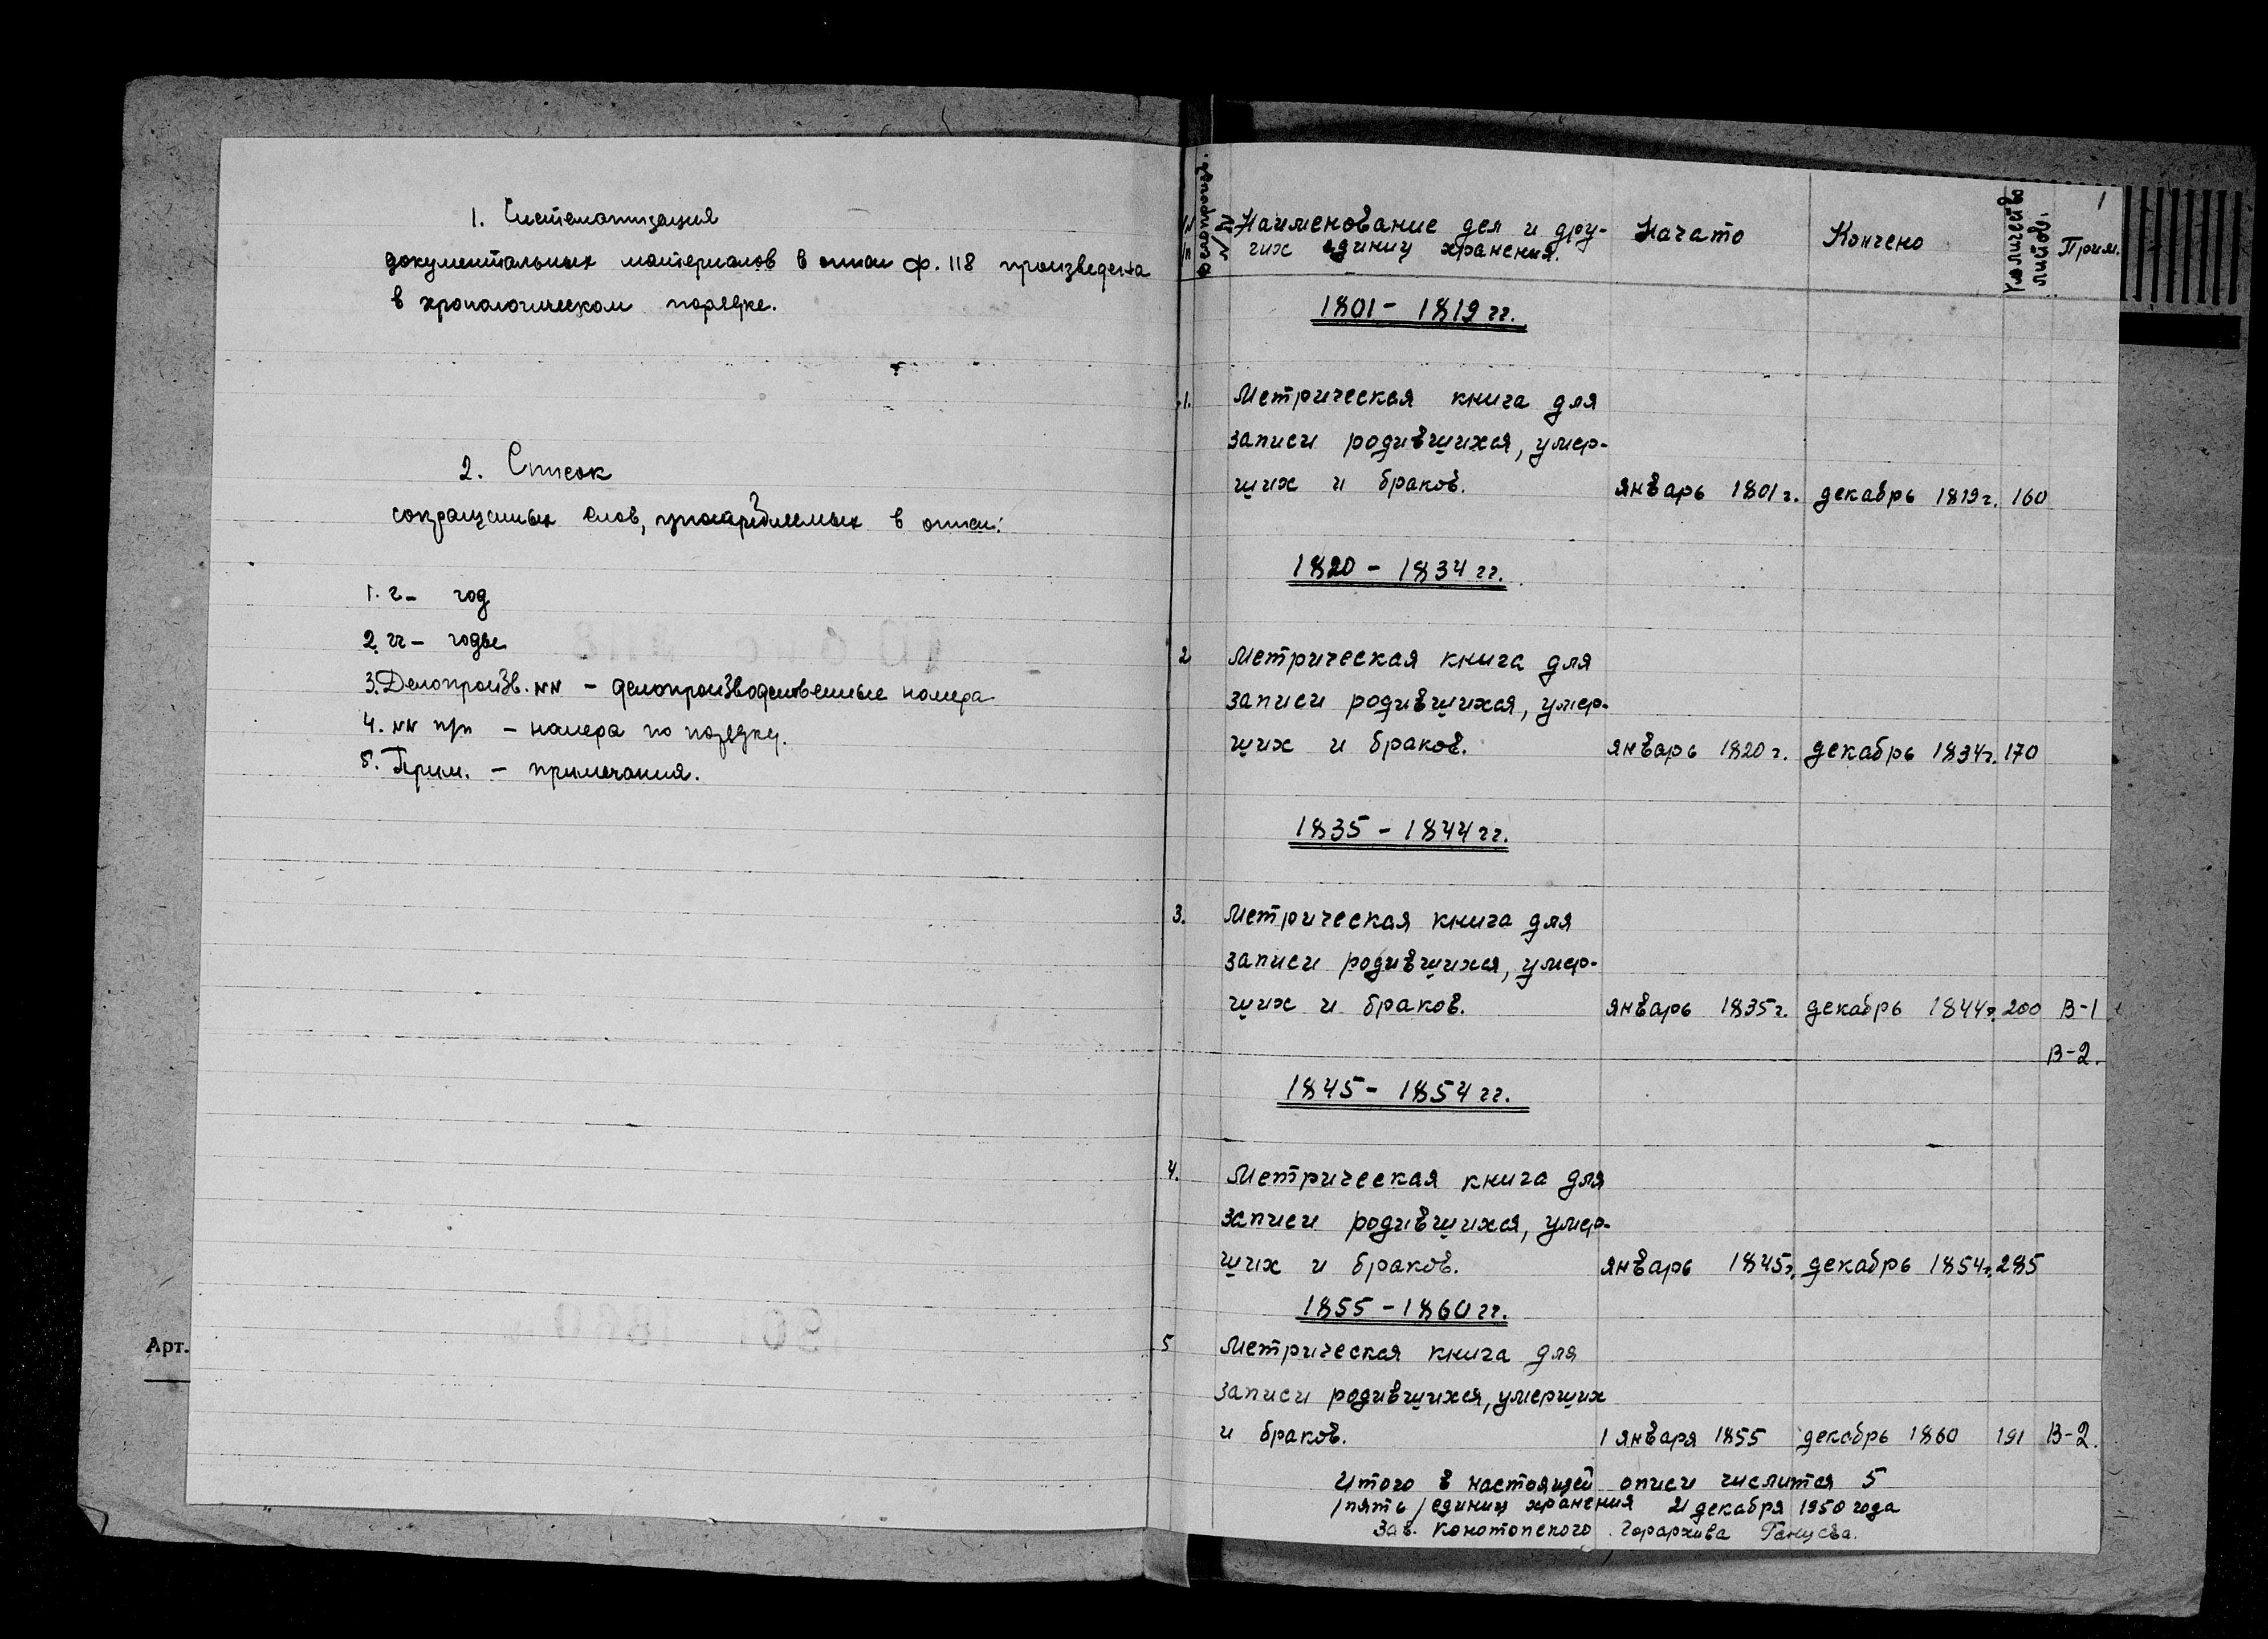 1. Систематизация
документальных материалов в описи ф. 118 произведена
в хронологическом порядке.
2. Список
сокращенных слов, употребляемых в описи:
1. г – год
2. гг – годы
3. Делопроизв. NN – делопроизводственные номера
4. NN п/п – номера по порядку.
5. Прим. – примечания.
Арт.
1
NN п/п
Делопроизв. NN
Наименование дел и дру-
гих единиц хранения.
Начато
Кончено
Количество листов.
Прим.
1801 – 1819 гг.
1. Метрическая книга для
записи родившихся, умер-
ших и браков. январь 1801 г. декабрь 1819 г. 160
1820 – 1834 гг.
2 Метрическая книга для
записи родившихся, умер-
ших и браков. январь 1820 г. декабрь 1834 г. 170
1835 – 1844 гг.
3. Метрическая книга для
записи родившихся, умер-
ших и браков. январь 1835 г. декабрь 1844 г. 200 В-1
В-2.
1845 – 1854 гг.
4. Метрическая книга для
записи родившихся, умер-
ших и браков. январь 1845 г. декабрь 1854 г. 285
1855 – 1860 гг.
5 Метрическая книга для
записи родившихся, умерших
и браков. 1 января 1855 декабрь 1860 191 В-2.
Итого в настоящей описи числится 5
/пять/ единиц хранения 21 декабря 1950 года
Зав. Конотопского Горархива